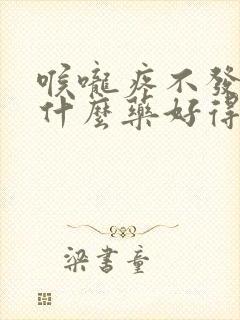 喉嚨疼不發
什麼藥好得
梁書童